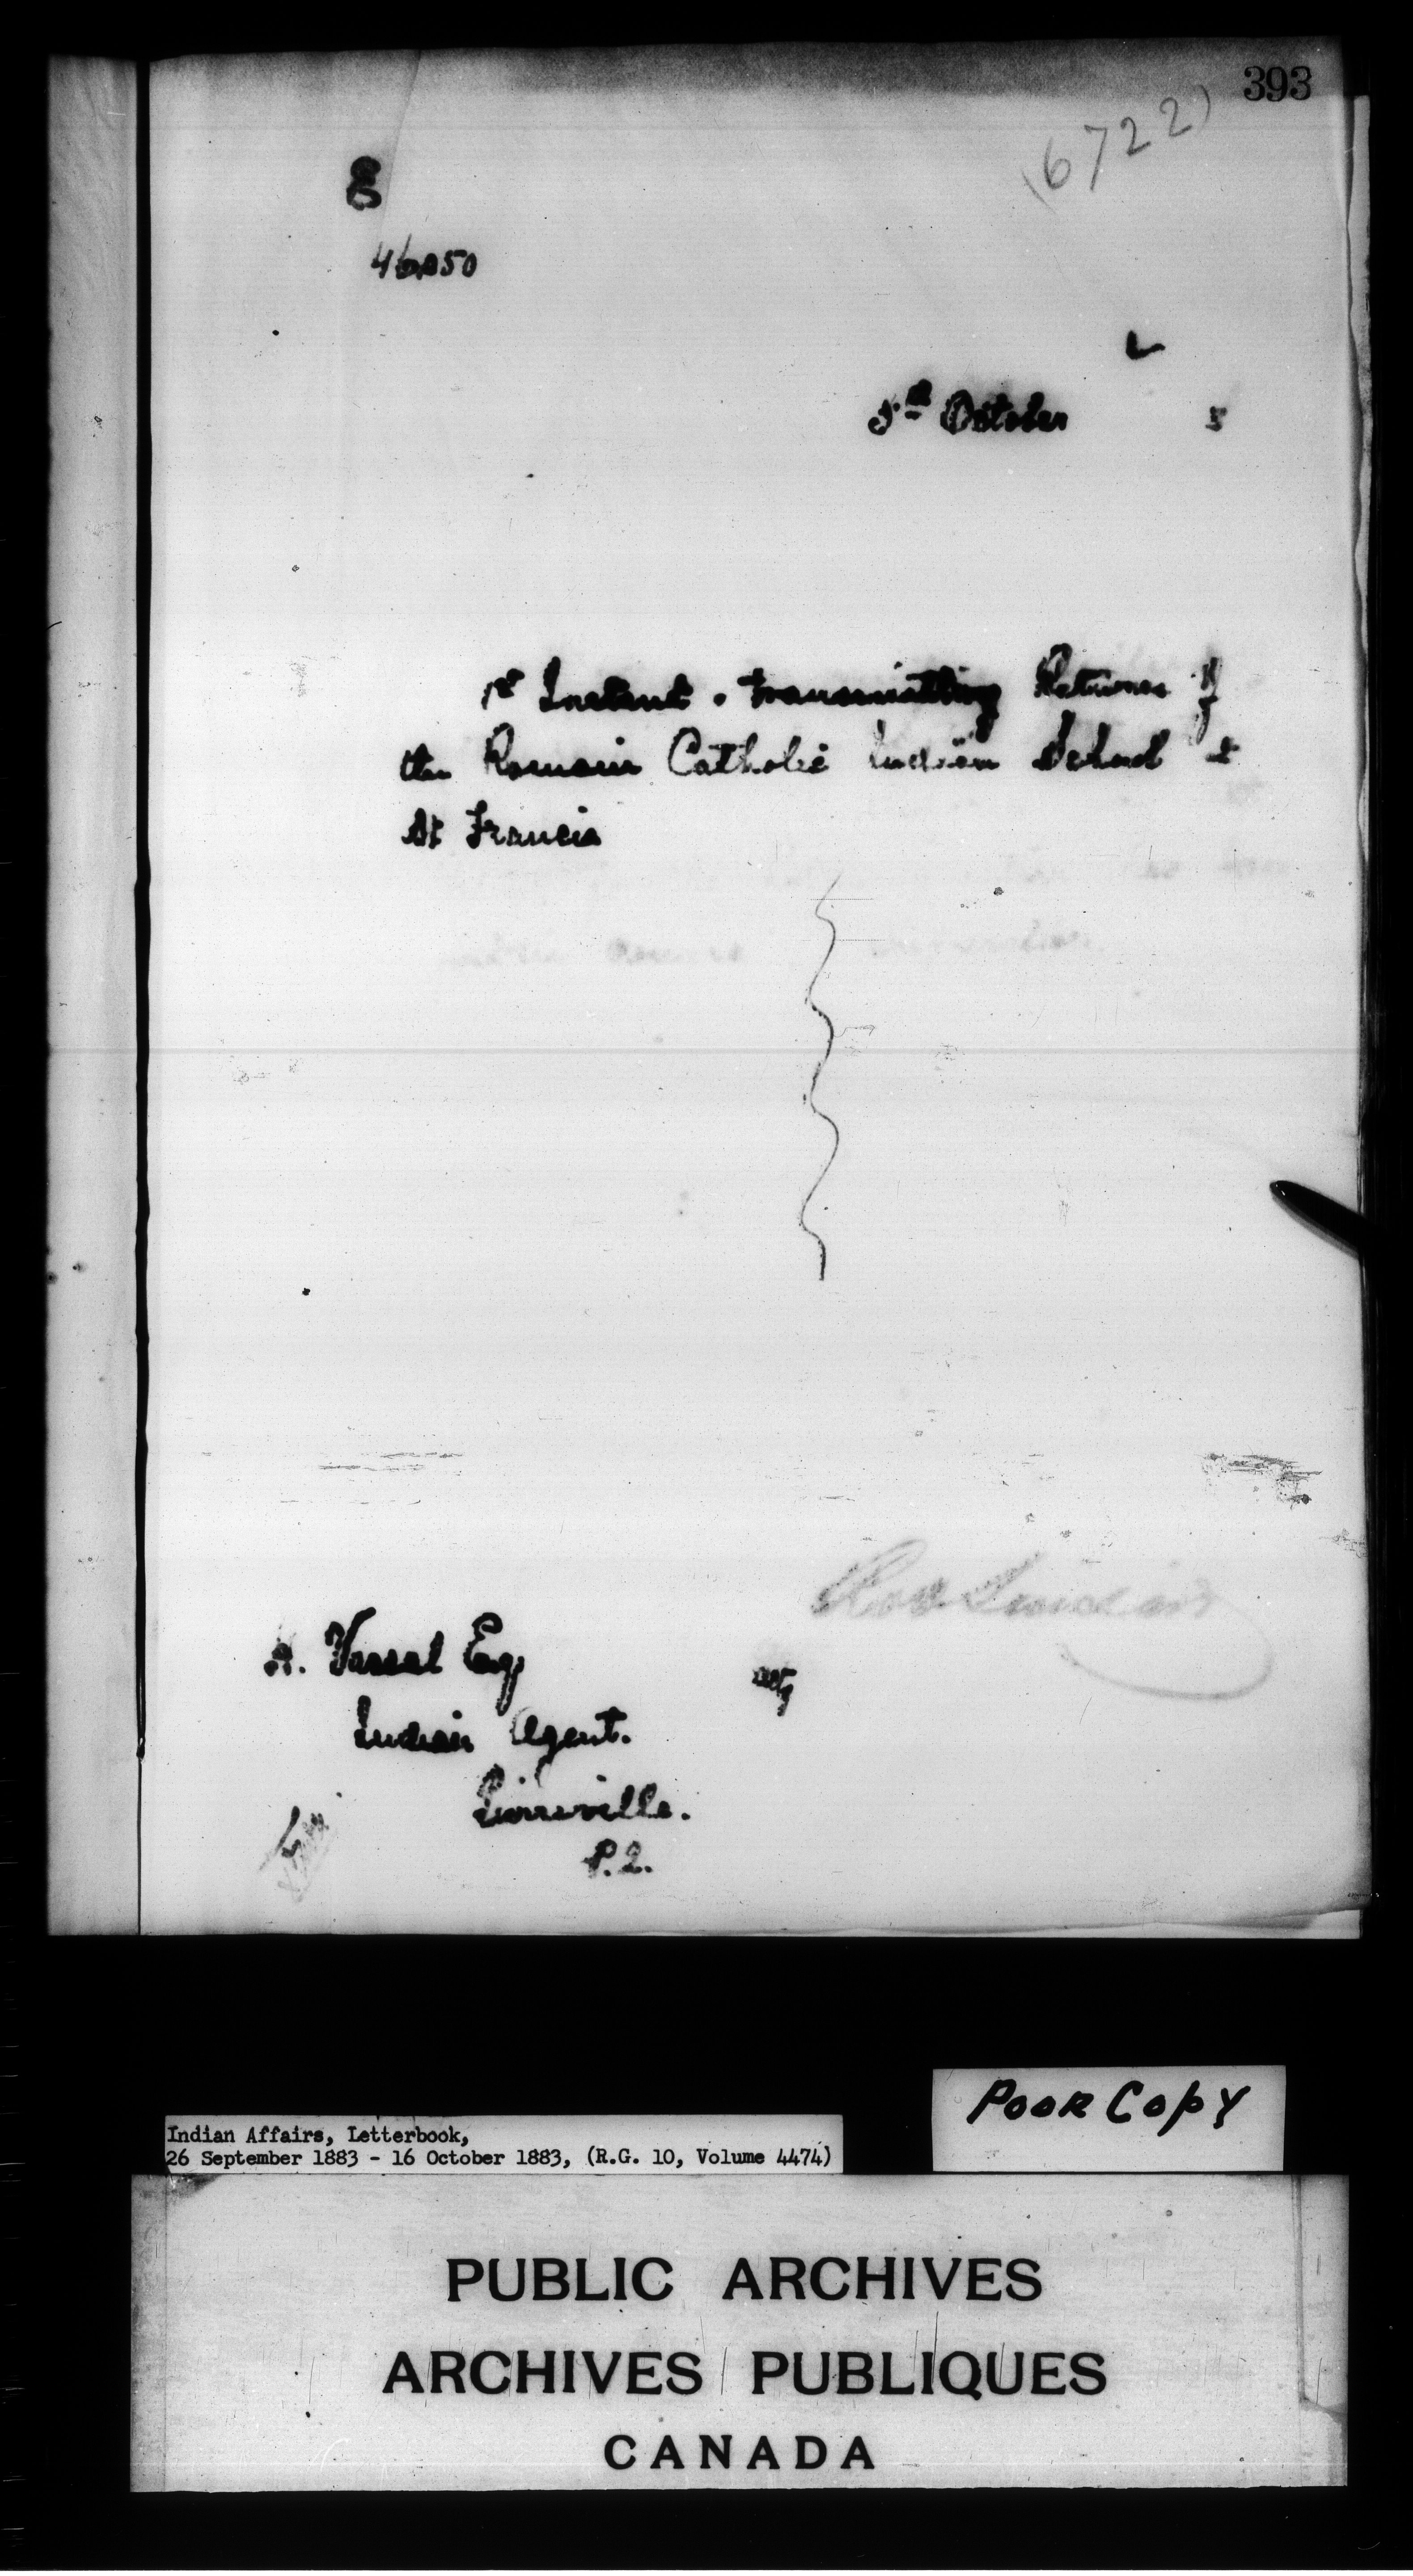 393
(6722)
g
46050
5th October 3
1st Instant. transmitting Returns of
the Roman Catholic Indian School at
St Francis
A. Vassal Esq
Indian Agent.
Pierreville.
P.Q.
POOR COPY
Indian Affairs, Letterbook,
26 September 1883 - 16 October 1883, (R.G. 10, Volume 4474)
PUBLIC ARCHIVES
ARCHIVES PUBLIQUES
CANADA